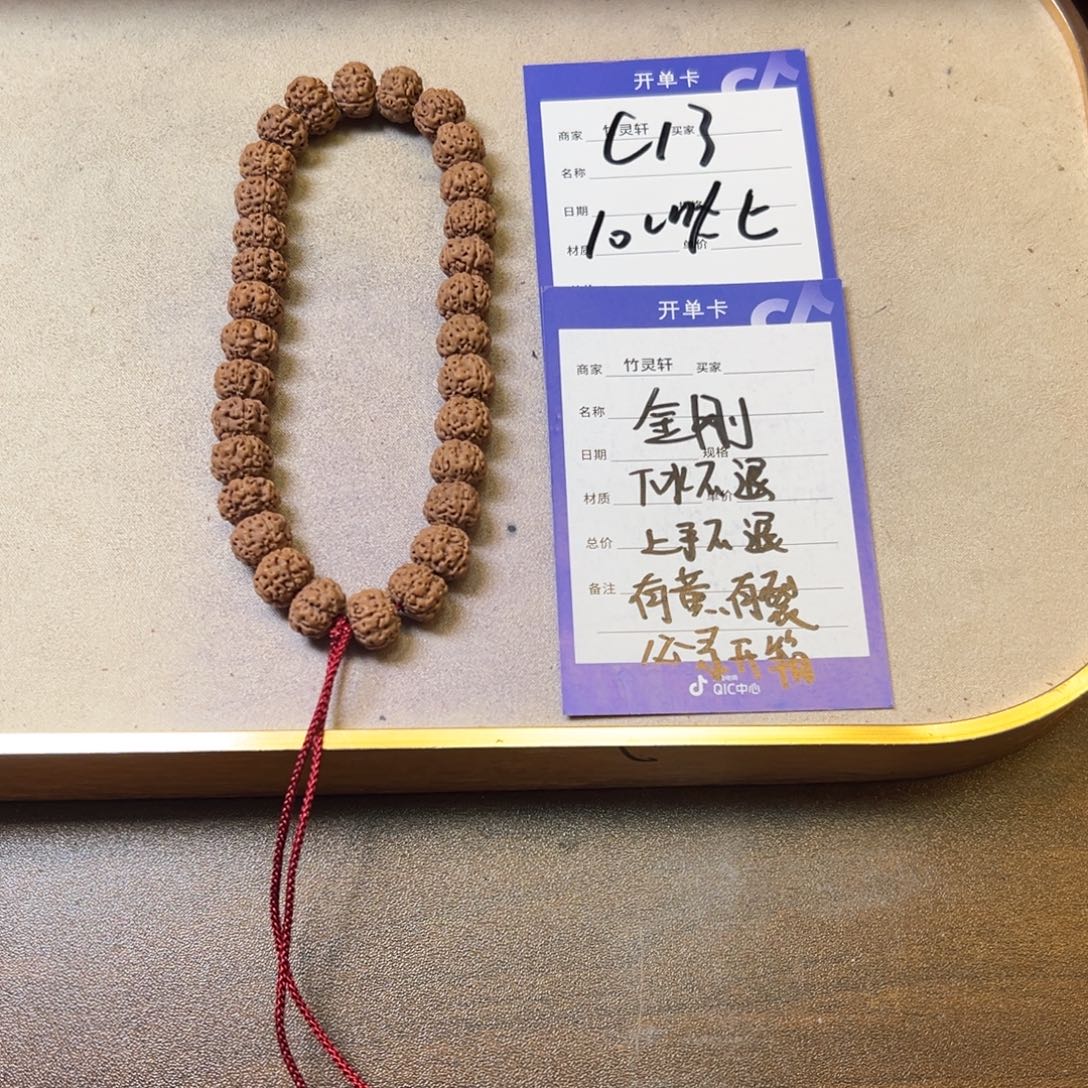 开单卡
商家 竹灵轩 买家
C13
名称
日期
10
材质 单价
开单卡
商家 竹灵轩 买家
名称 金刚
日期 规格
下水不退
材质 单价
总价 上手不退
备注 有黄、有裂
公录开箱
QIC中心